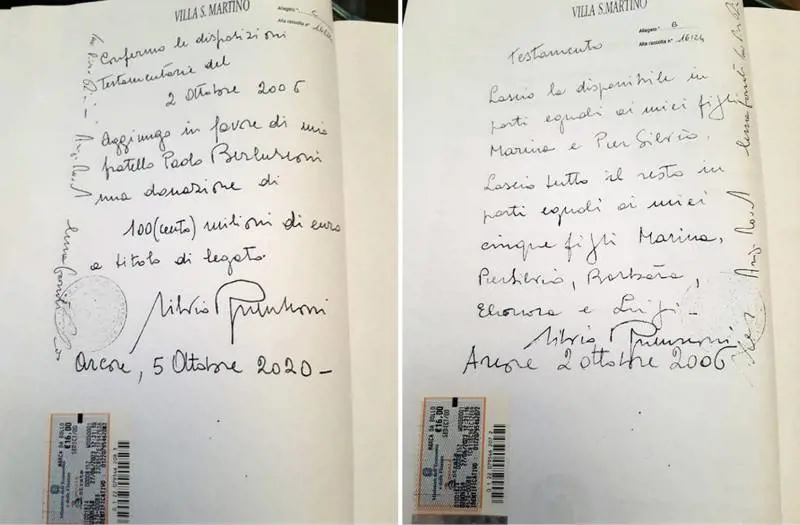 VILLA S. MARTINO
Allegato " C
Alla raccolta n°
Confermo le disposizioni
Testamentarie del
2 Ottobre 2006
Aggiungo in favore di mio
fratello Paolo Berlusconi
una donazione di
100 (cento) milioni di euro
a titolo di legato.
Silvio Berlusconi
Arcore, 5 Ottobre 2020 -
MARCA DA BOLLO
€16,00
SEDICI/00
VILLA S. MARTINO
Allegato " B
Alla raccolta n° 16124
Testamento
Lascio la disponibile in
parti eguali ai miei figli
Marina e Pier Silvio.
Lascio tutto il resto in
parti eguali ai miei
cinque figli Marina,
Pier Silvio, Barbara,
Eleonora e Luigi -
Silvio Berlusconi
Arcore 2 ottobre 2006
MARCA DA BOLLO
€16,00
SEDICI/00